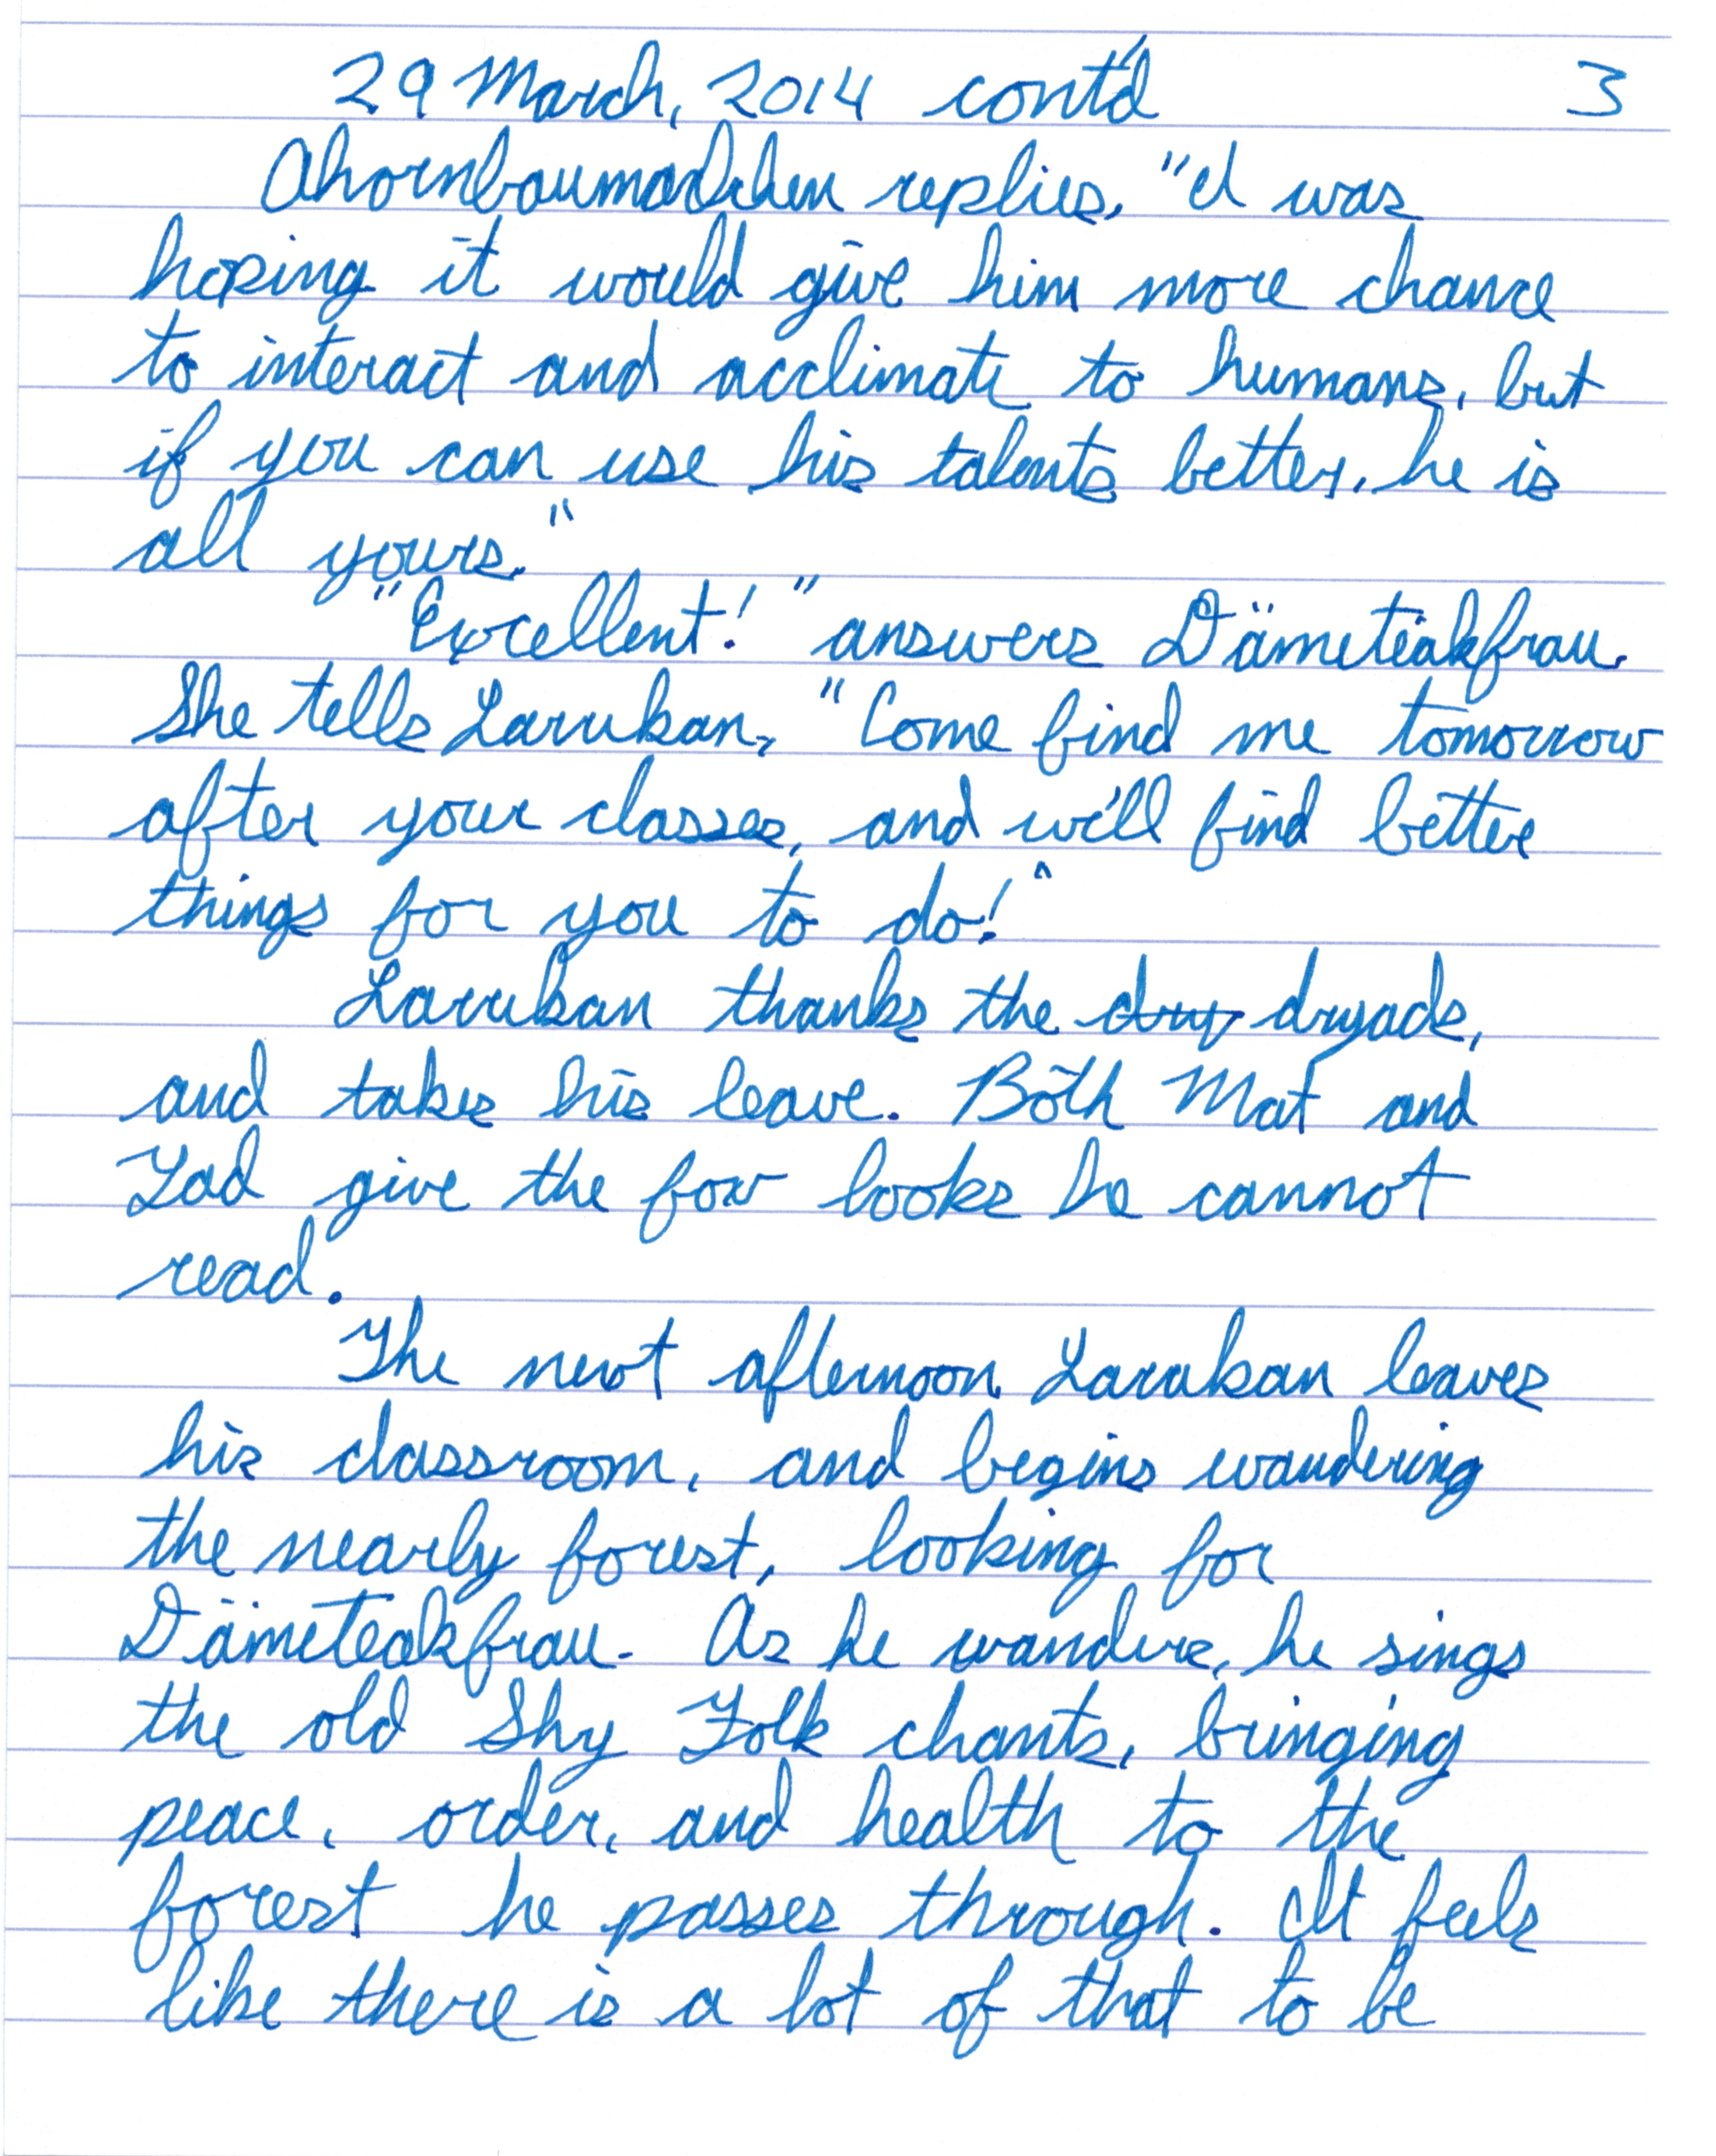 29 March, 2014 cont'd 3
Ahornbaumadchen replies, "I was
hoping it would give him more chance
to interact and acclimate to humans, but
if you can use his talents better, he is
all yours."
"Excellent!" answers Dämeteakfrau.
She tells Larukan, "Come find me tomorrow
after your classes, and we'll find better
things for you to do!"
Larukan thanks the dry dryads,
and takes his leave. Both Mat and
Tad give the fox looks he cannot
read.
The next afternoon Larukan leaves
his classroom, and begins wandering
the nearly forest, looking for
Dämeteakfrau. As he wanders, he sings
the old Shy Folk chants, bringing
peace, order, and health to the
forest he passes through. It feels
like there is a lot of that to be